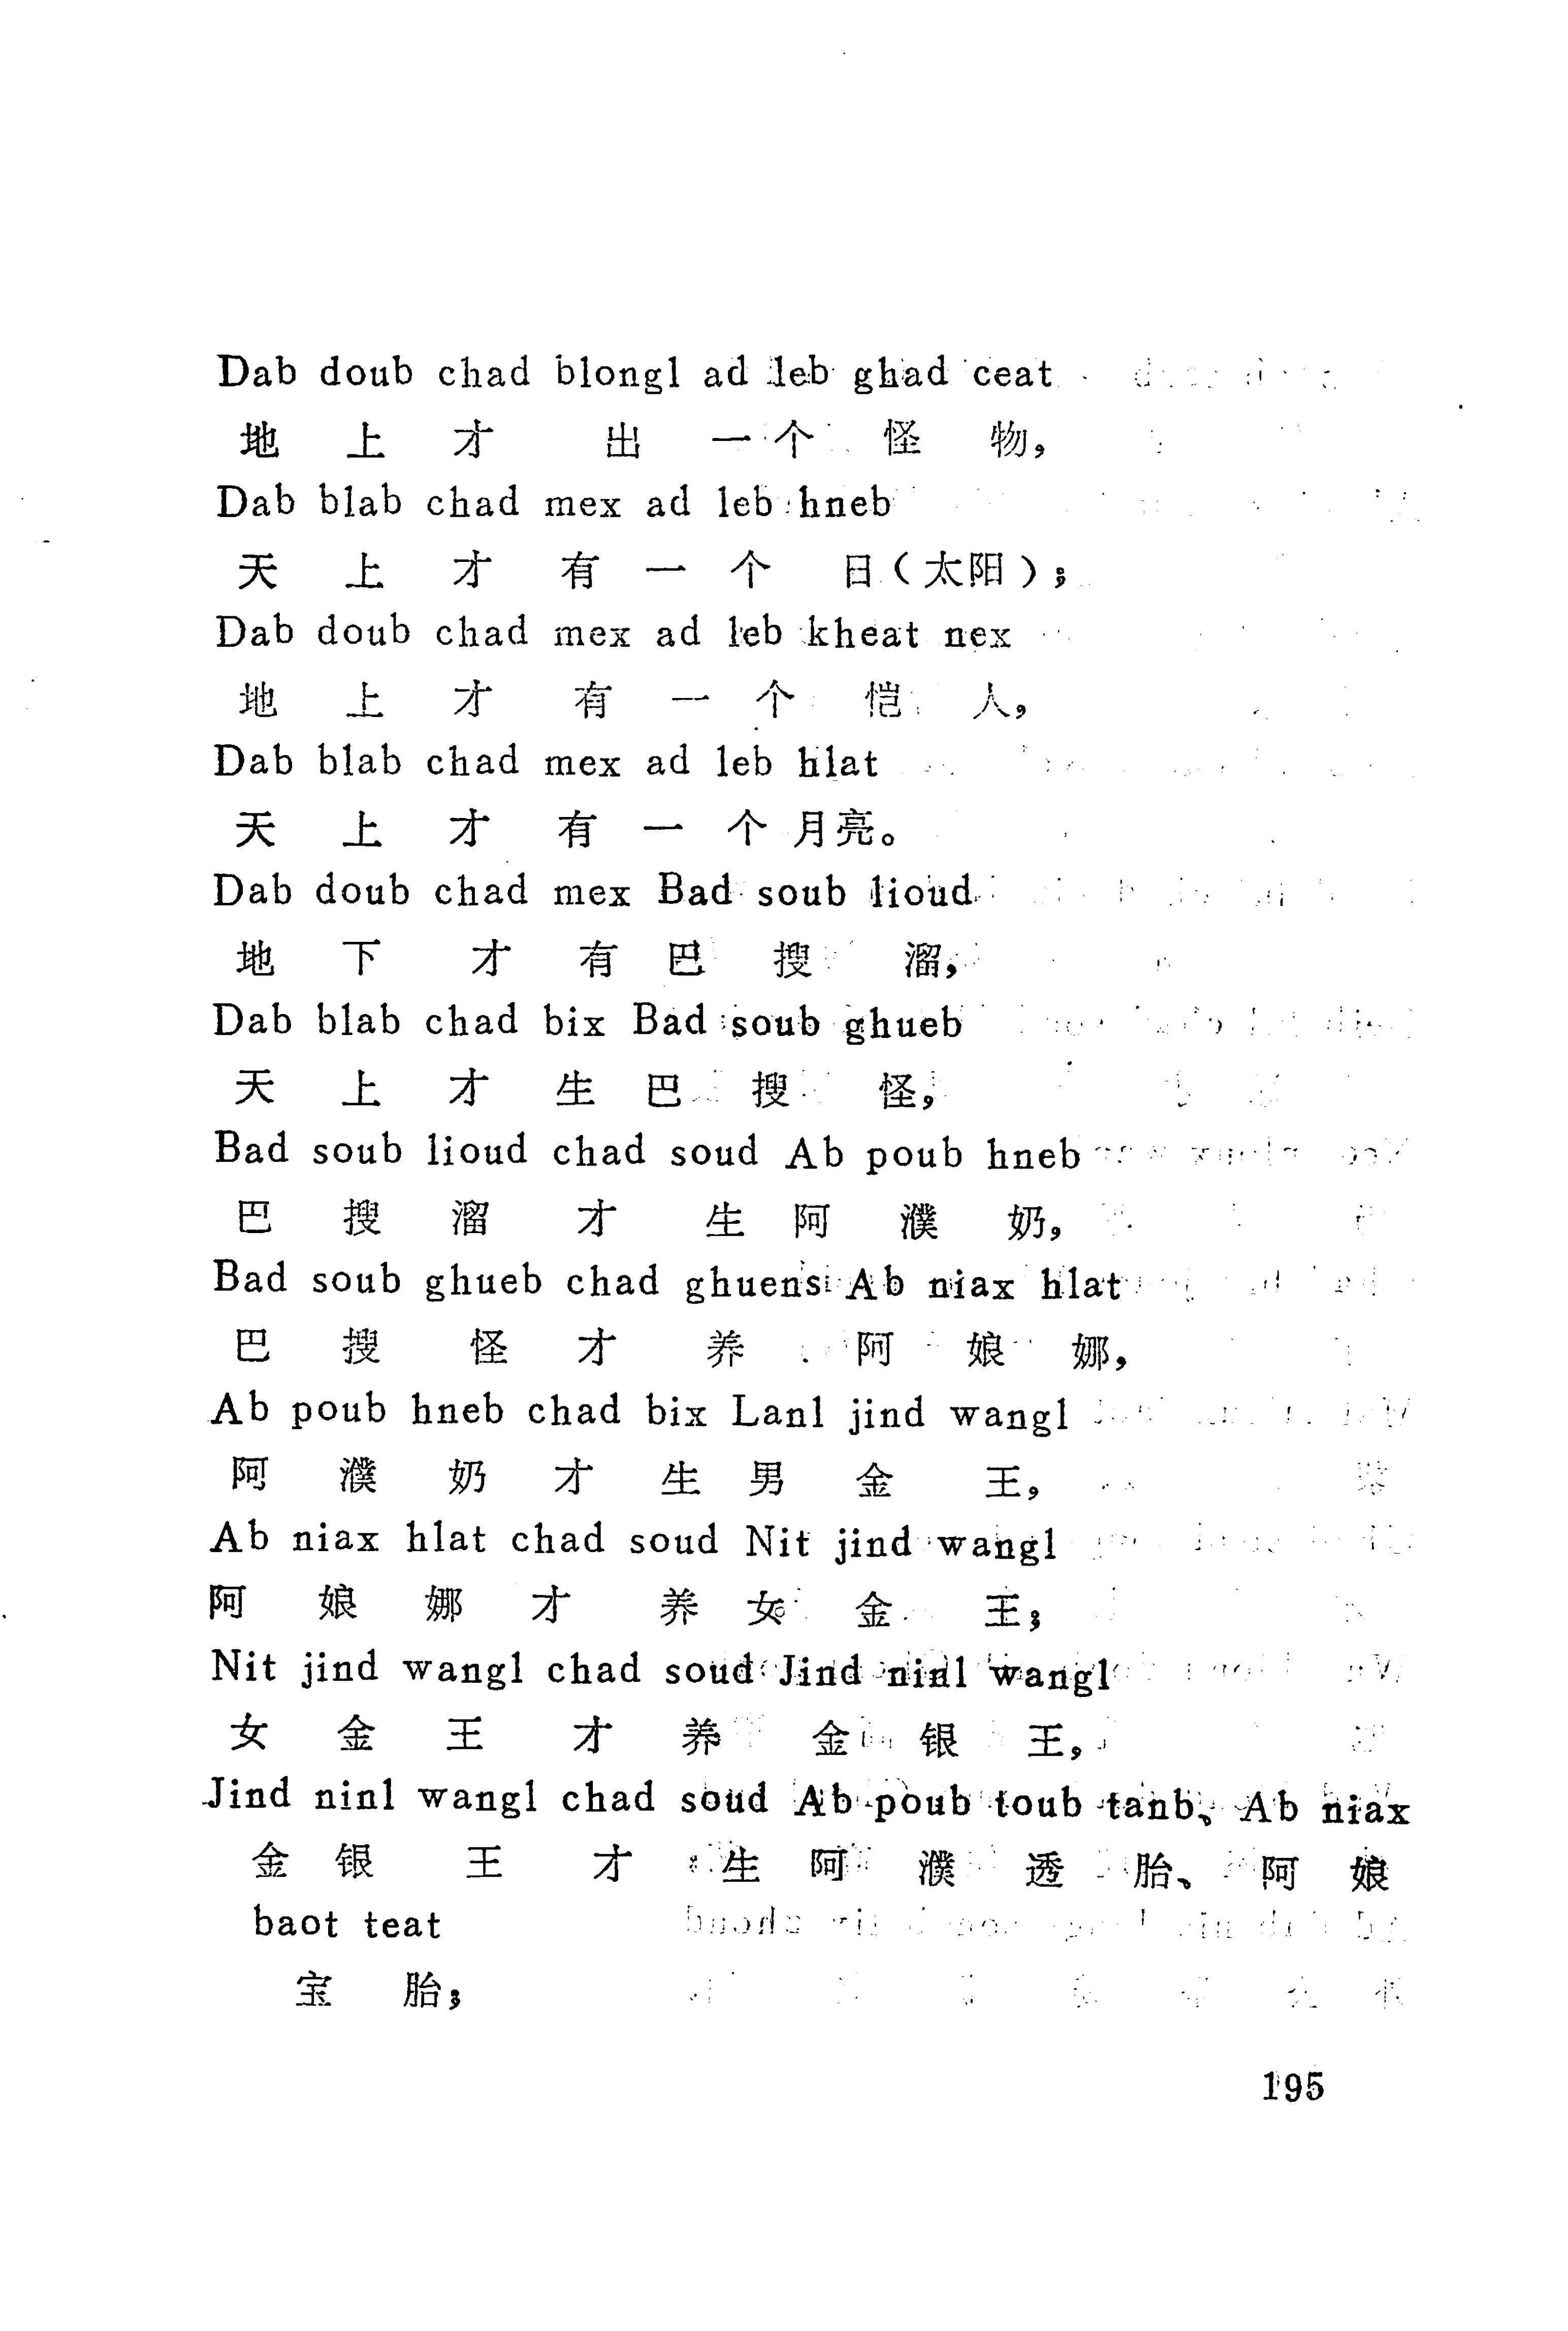 Dab doub chad blongl ad leb ghad ceat
地 上 才 出 一 个 怪 物，
Dab blab chad mex ad leb hneb
天 上 才 有 一 个 日（太阳）；
Dab doub chad mex ad leb kheat nex
地 上 才 有 一 个 恺 人，
Dab blab chad mex ad leb hlat
天 上 才 有 一 个 月亮。
Dab doub chad mex Bad soub lioud
地 下 才 有 巴 搜 溜，
Dab blab chad bix Bad soub ghueb
天 上 才 生 巴 搜 怪，
Bad soub lioud chad soud Ab poub hneb
巴 搜 溜 才 生 阿 濮 奶，
Bad soub ghueb chad ghuens Ab niax hlat
巴 搜 怪 才 养 阿 娘 娜，
Ab poub hneb chad bix Lanl jind wangl
阿 濮 奶 才 生 男 金 王，
Ab niax hlat chad soud Nit jind wangl
阿 娘 娜 才 养 女 金 王；
Nit jind wangl chad soud Jind ninl wangl
女 金 王 才 养 金 银 王，
Jind ninl wangl chad soud Ab poub toub tanb、Ab niax
金 银 王 才 生 阿 濮 透 胎、阿 娘
baot teat
宝 胎；
195